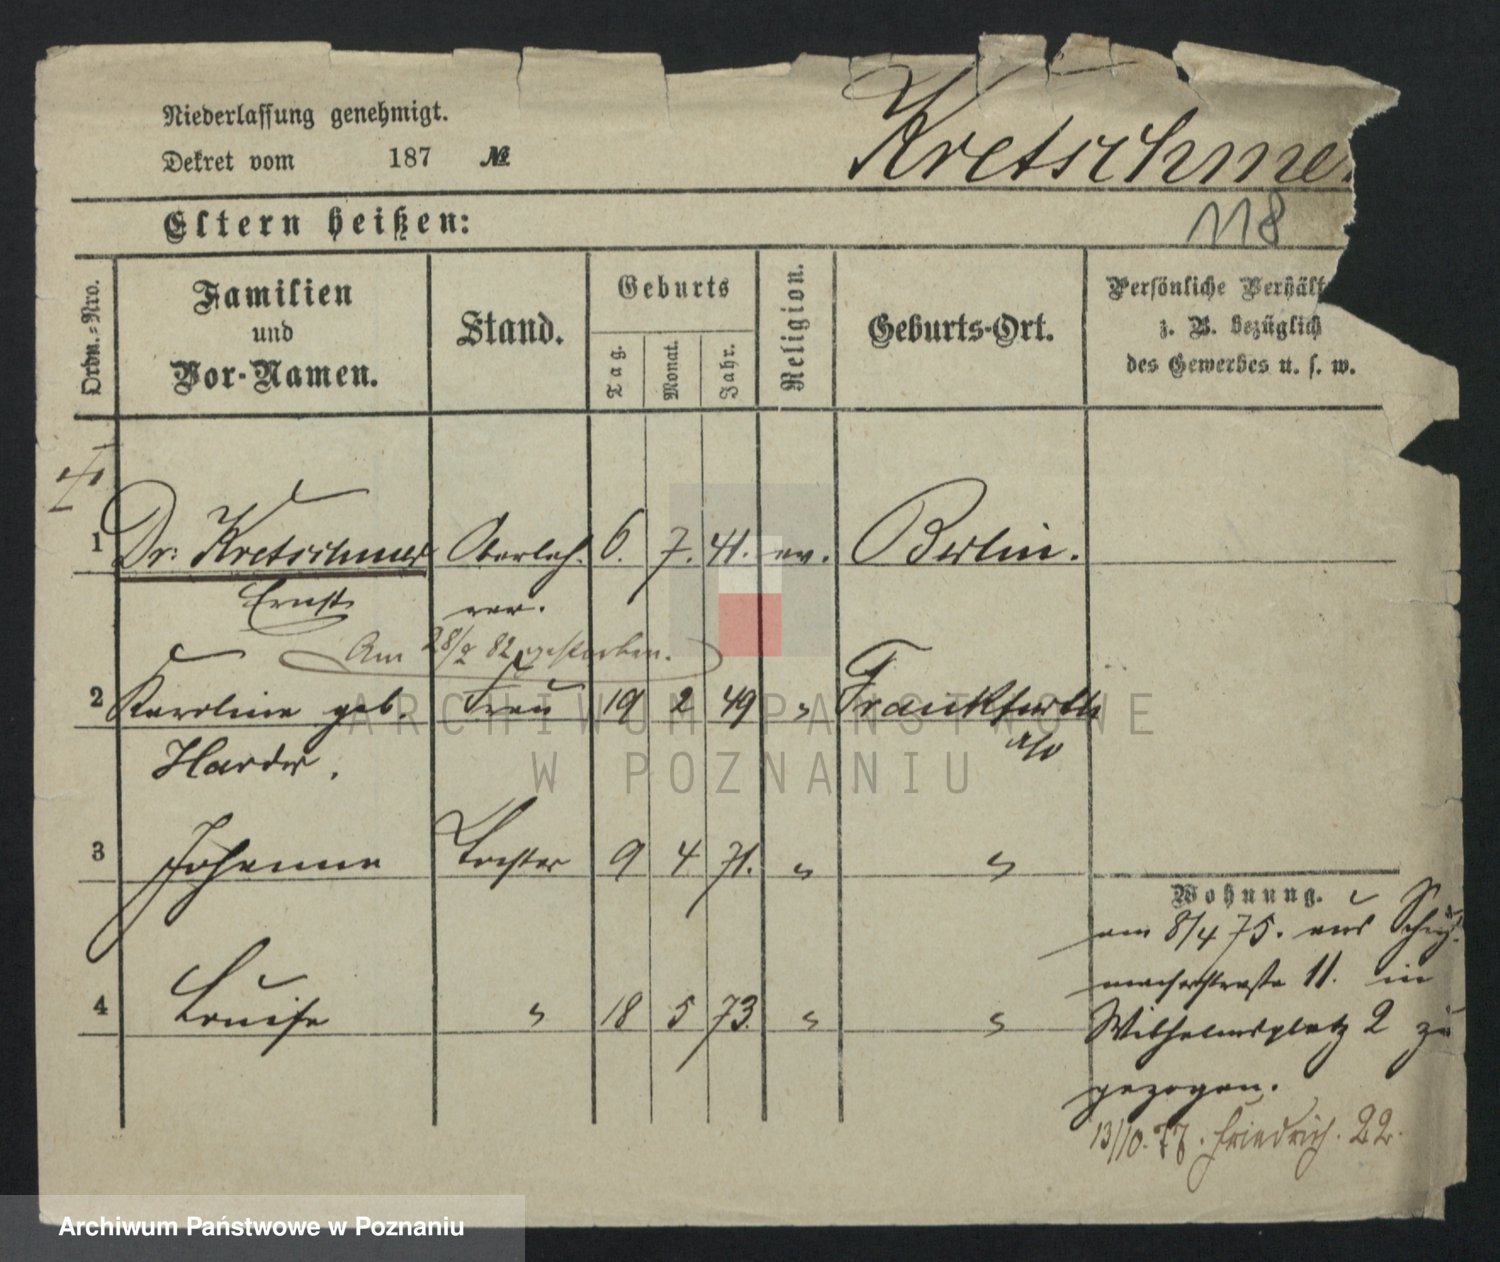 Niederlassung genehmigt.
Dekret vom 187 №
Kretschmer
118
Eltern heißen:
Ordn.-Nro.
Familien
und
Vor-Namen.
Stand.
Geburts
Tag.
Monat.
Jahr.
Religion.
Geburts-Ort.
Persönliche Verhält
z. B. bezüglich
des Gewerbes u. s. w.
1 Dr: Kretschmer Oberleh- 6. 7. 41. ev. Berlin.
Ernst rer.
Am 28/2 82 gestorben.
2 Karoline geb. Frau 19 2 49 " Frankfurth
Harder. a/o
3 Johanna Tochter 9 4 71. " "
4 Louise " 18 5 73. " "
Wohnung.
am 8/4 75. aus Schuh-
macherstraße 11. in
Wilhelmsplatz 2 zu
gezogen.
13/10. 77. Friedrich. 22.
ARCHIWUM PAŃSTWOWE
W POZNANIU
Archiwum Państwowe w Poznaniu